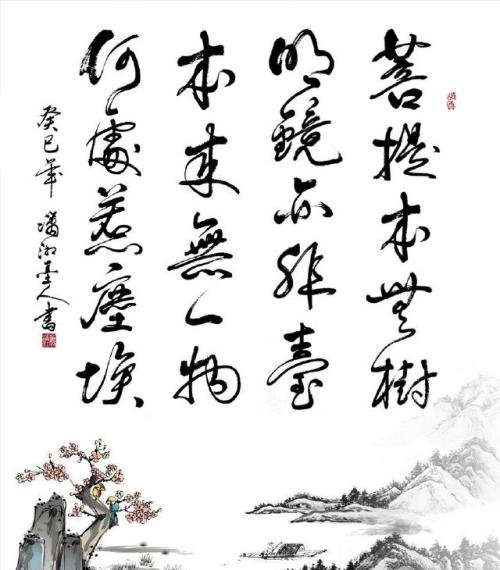 菩提本無樹
明鏡亦非臺
本來無一物
何處惹塵埃
癸巳年 墨人書